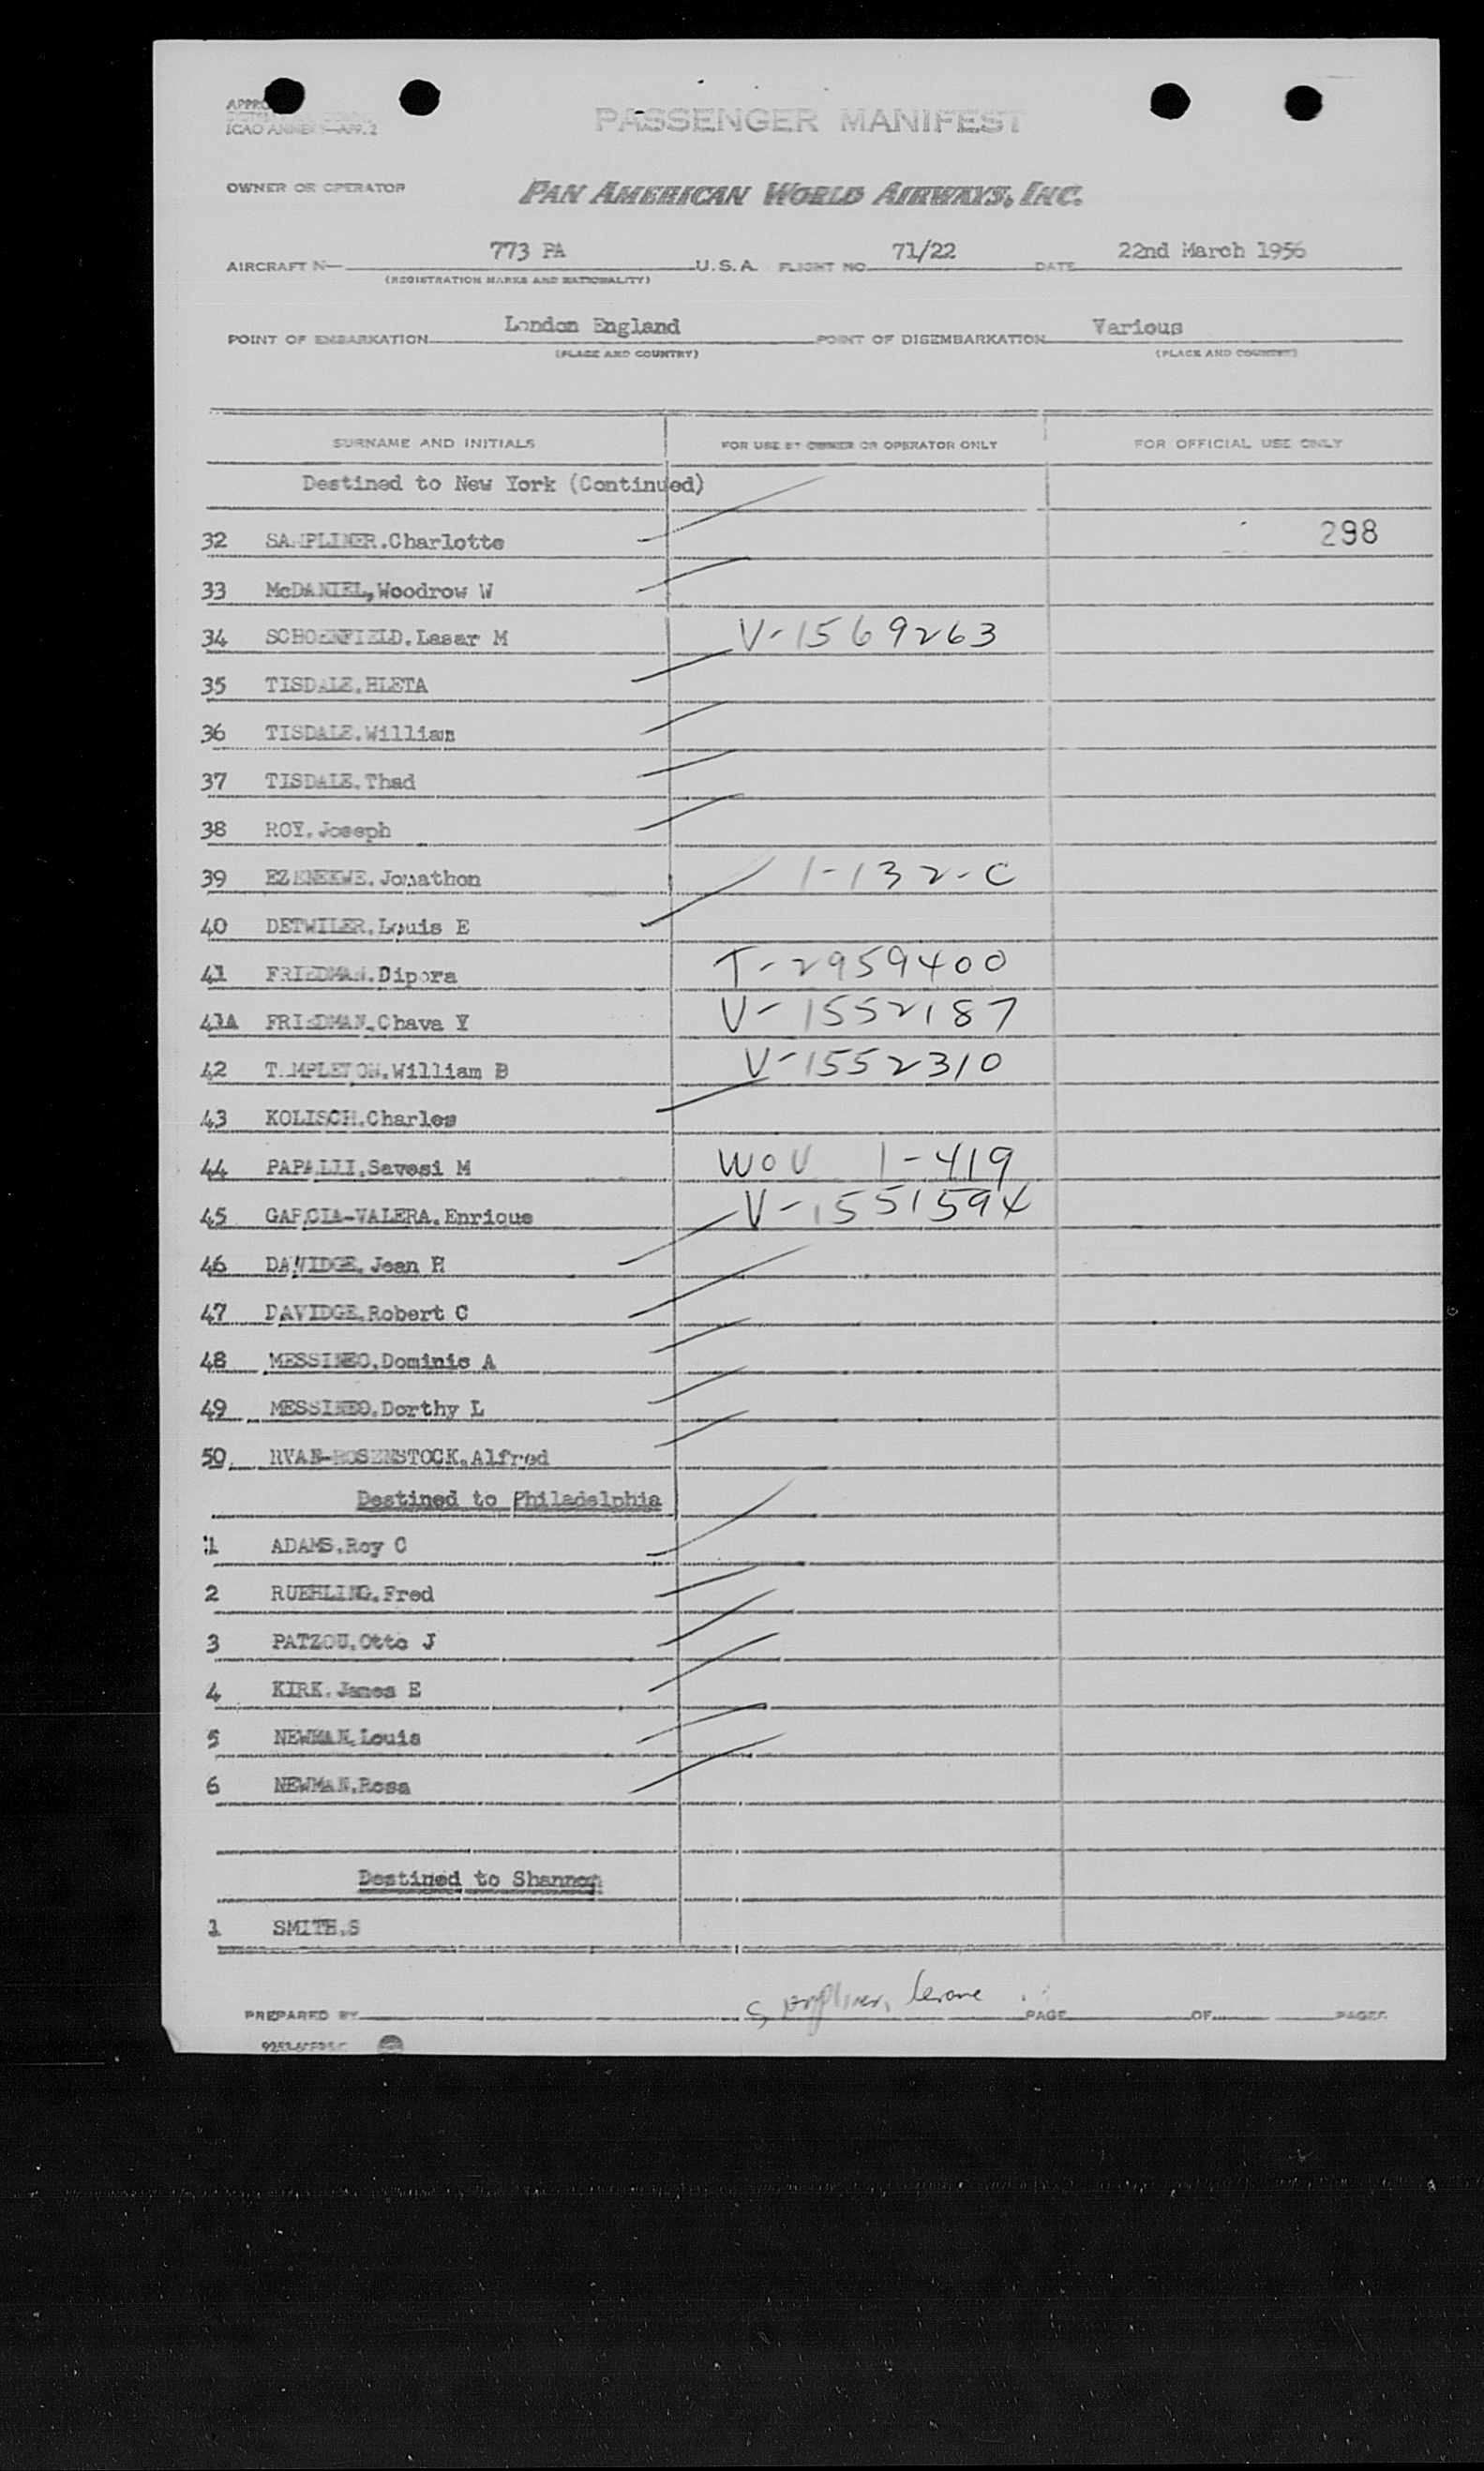 PASSENGER MANIFEST
ICAO ANNEX 9—APP. 2
OWNER OR OPERATOR PAN AMERICAN WORLD AIRWAYS, INC.
AIRCRAFT N— 773 PA U.S.A. FLIGHT NO. 71/22 DATE 22nd March 1956
(REGISTRATION MARKS AND NATIONALITY)
POINT OF EMBARKATION London England POINT OF DISEMBARKATION Various
(PLACE AND COUNTRY) (PLACE AND COUNTRY)
SURNAME AND INITIALS FOR USE BY OWNER OR OPERATOR ONLY FOR OFFICIAL USE ONLY
Destined to New York (Continued)
32 SAMPLINER.Charlotte 298
33 McDANIEL,Woodrow W
34 SCHOENFIELD.Lasar M V-1569263
35 TISDALE.HLETA
36 TISDALE.William
37 TISDALE.Thad
38 ROY.Joseph
39 EZENEKWE.Jonathon 1-132-C
40 DETWILER.Louis E
41 FRIEDMAN.Dipora T-2959400
41A FRIEDMAN.Chava Y V-1552187
42 TEMPLETON.William B V-1552310
43 KOLISCH.Charles
44 PAPALII.Savesi M WOV 1-419
45 GARCIA-VALERA.Enrique V-1551594
46 DAVIDGE.Jean H
47 DAVIDGE.Robert C
48 MESSINEO.Dominic A
49 MESSINEO.Dorthy L
50 .Alfred
Destined to Philadelphia
1 ADAMS.Roy C
2 RUEHLING.Fred
3 PATZOU.Otto J
4 KIRK.James E
5 NEWMAN.Louis
6 NEWMAN.Rosa
Destined to Shannon
1 SMITH.S
PREPARED BY PAGE OF PAGES